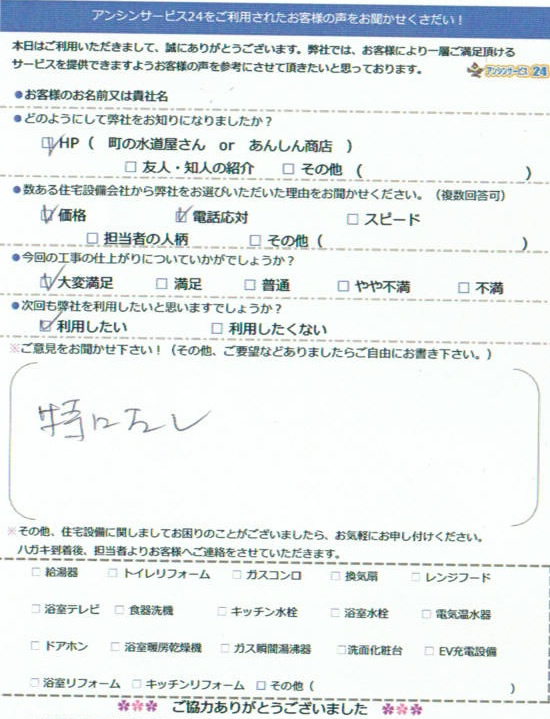 アンシンサービス24をご利用されたお客様の声をお聞かせくださだい！
本日はご利用いただきまして、誠にありがとうございます。弊社では、お客様により一層ご満足頂ける
サービスを提供できますようお客様の声を参考にさせて頂きたいと思っております。
アンシンサービス24
●お客様のお名前又は貴社名
●どのようにして弊社をお知りになりましたか？
☑HP（ 町の水道屋さん or あんしん商店 ）
□友人・知人の紹介 □その他（ ）
●数ある住宅設備会社から弊社をお選びいただいた理由をお聞かせください。（複数回答可）
☑価格 ☑電話応対 □スピード
□担当者の人柄 □その他（ ）
●今回の工事の仕上がりについていかがでしょうか？
☑大変満足 □満足 □普通 □やや不満 □不満
●次回も弊社を利用したいと思いますでしょうか？
☑利用したい □利用したくない
※ご意見をお聞かせ下さい！（その他、ご要望などありましたらご自由にお書き下さい。）
特になし
※その他、住宅設備に関しましてお困りのことがございましたら、お気軽にお申し付けください。
ハガキ到着後、担当者よりお客様へご連絡をさせていただきます。
□給湯器 □トイレリフォーム □ガスコンロ □換気扇 □レンジフード
□浴室テレビ □食器洗機 □キッチン水栓 □浴室水栓 □電気温水器
□ドアホン □浴室暖房乾燥機 □ガス瞬間湯沸器 □洗面化粧台 □EV充電設備
□浴室リフォーム □キッチンリフォーム □その他（ ）
ご協力ありがとうございました